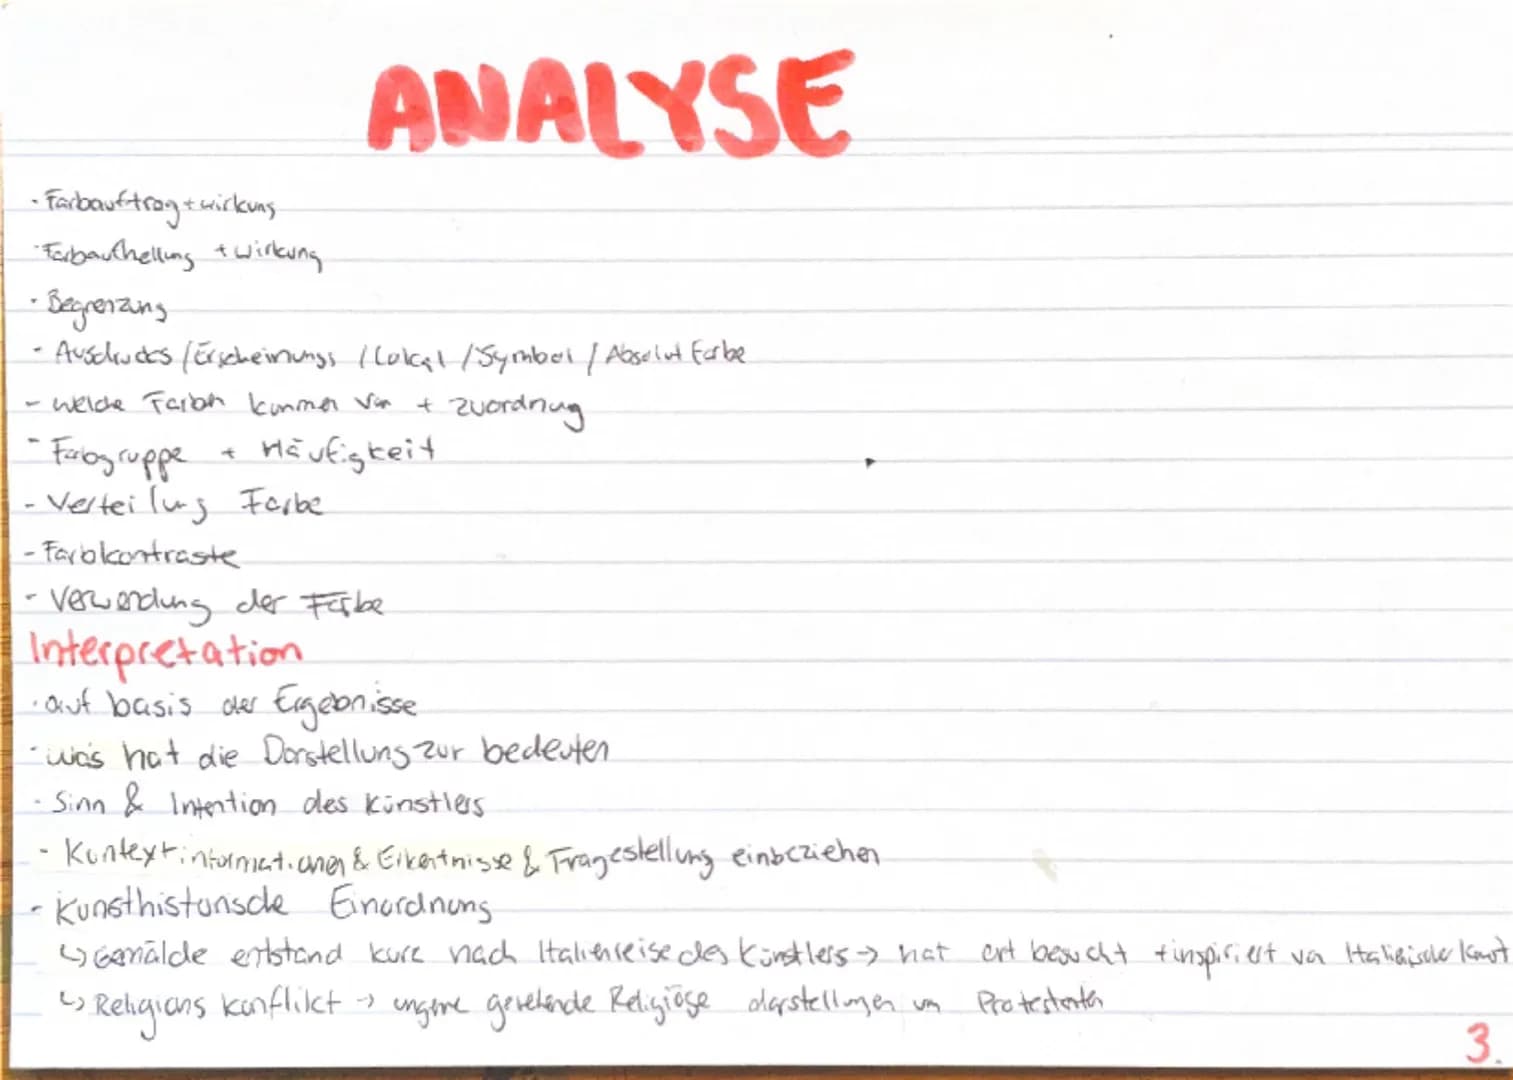 ANALYSE
- Farbauftrag + wirkung
- Farbaufhellung + wirkung
- Begrenzung
- Ausdrucks / Erscheinungs / Lokal / Symbol / Absolut Farbe
- welche Farben kommen vor + zuordnung
- Farbgruppe + Häufigkeit
- Verteilung Farbe
- Farbkontraste
- Verwendung der Farbe
Interpretation
- auf basis der Ergebnisse
- was hat die Darstellung zur bedeuten
- Sinn & Intention des Künstlers
- Kontextinformationen & Erkentnisse & Fragestellung einbeziehen
- Kunsthistorische Einordnung
↳ Gemälde entstand kurz nach Italienreise des Künstlers → hat ort besucht + inspiriert von Kunst
↳ Religions konflikt → ungerne Religiöse darstellungen Protestanten
3.